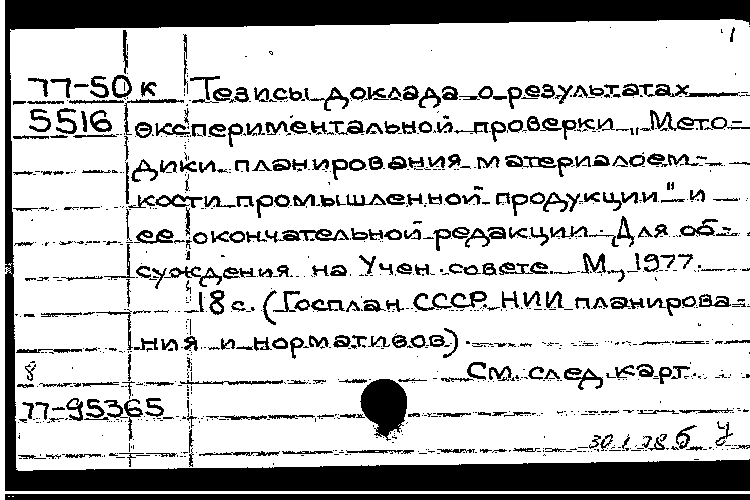 1
77-50к Тезисы доклада о результатах
5516 экспериментальной проверки „Мето-
дики планирования материалоем-
кости промышленной продукции" и
ее окончательной редакции. Для об-
суждения на Учен. совете. М., 1977.
18 с. (Госплан СССР. НИИ планирова-
ния и нормативов).
8 См. след. карт.
77-95365
30.1.78 Б У